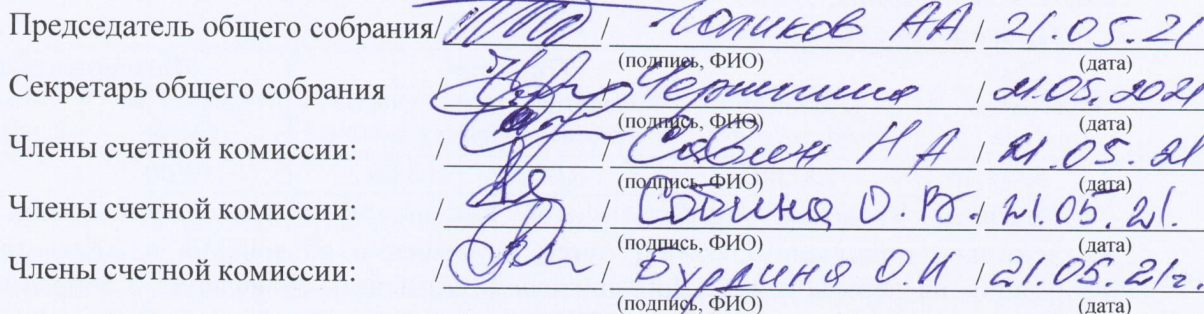 Председатель общего собрания/ / Голиков АА / 21.05.21
(подпись, ФИО) (дата)
Секретарь общего собрания / / / 21.05.2021
(подпись, ФИО) (дата)
Члены счетной комиссии: / / Савин Н А / 21.05.21
(подпись, ФИО) (дата)
Члены счетной комиссии: / / О.В. / 21.05.21.
(подпись, ФИО) (дата)
Члены счетной комиссии: / / О.И / 21.05.21г.
(подпись, ФИО) (дата)